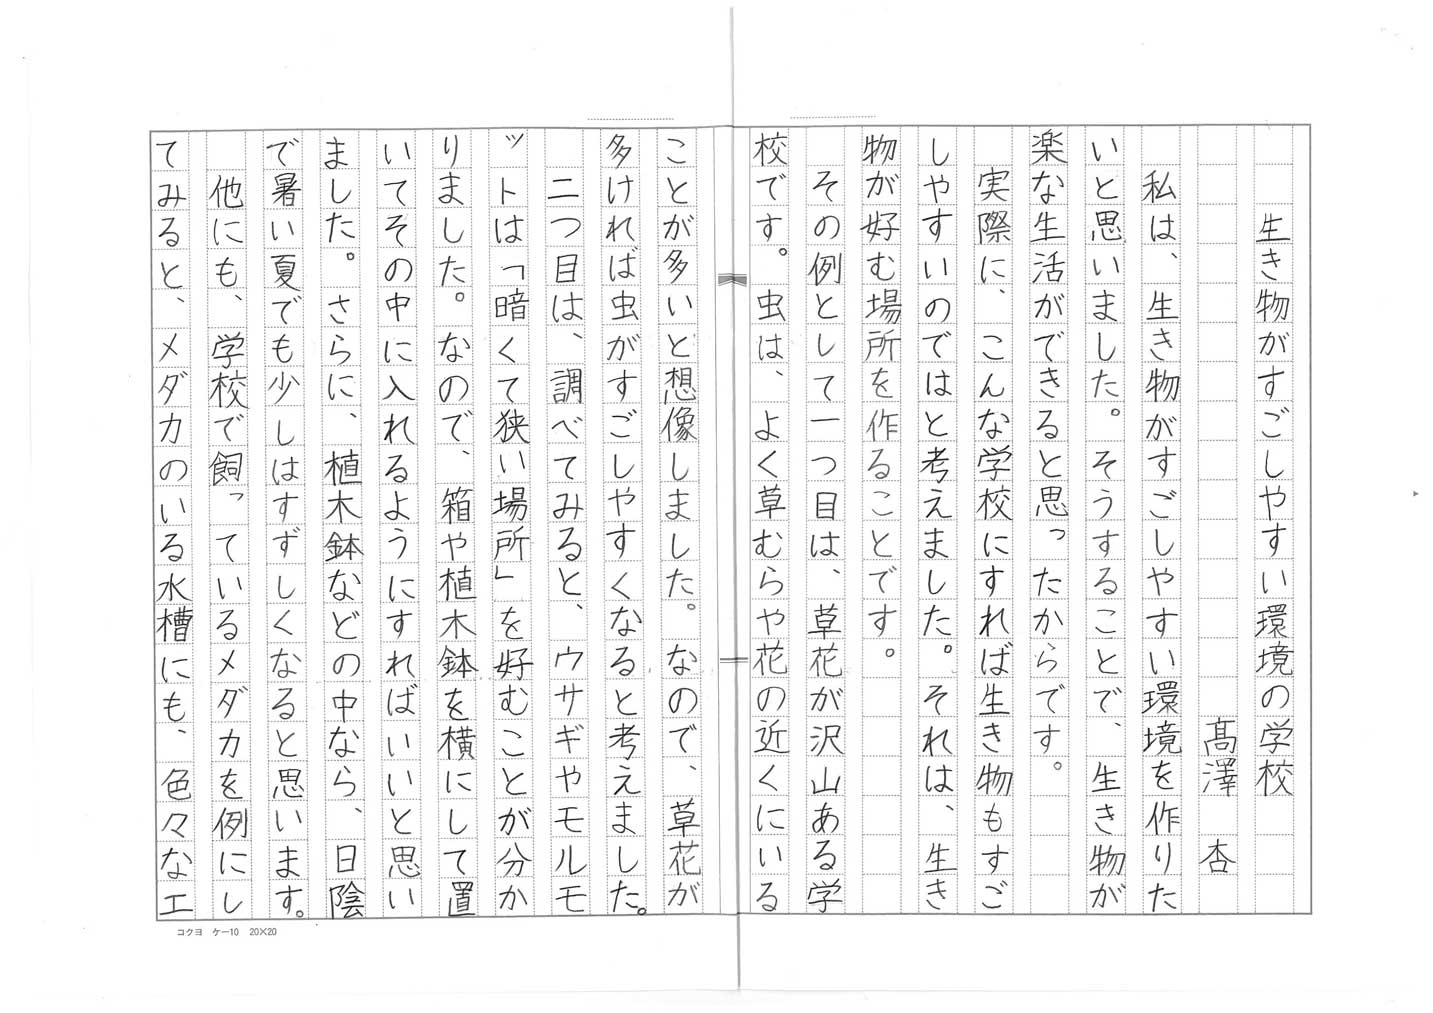 生き物がすごしやすい環境の学校
髙澤　杏
　私は、生き物がすごしやすい環境を作りた
いと思いました。そうすることで、生き物が
楽な生活ができると思ったからです。
　実際に、こんな学校にすれば生き物もすご
しやすいのではと考えました。それは、生き
物が好む場所を作ることです。
　その例として一つ目は、草花が沢山ある学
校です。虫は、よく草むらや花の近くにいる
ことが多いと想像しました。なので、草花が
多ければ虫がすごしやすくなると考えました。
　二つ目は、調べてみると、ウサギやモルモ
ットは「暗くて狭い場所」を好むことが分か
りました。なので、箱や植木鉢を横にして置
いてその中に入れるようにすればいいと思い
ました。さらに、植木鉢などの中なら、日陰
で暑い夏でも少しはすずしくなると思います。
　他にも、学校で飼っているメダカを例にし
てみると、メダカのいる水槽にも、色々なエ
コクヨ　ケー10　20×20